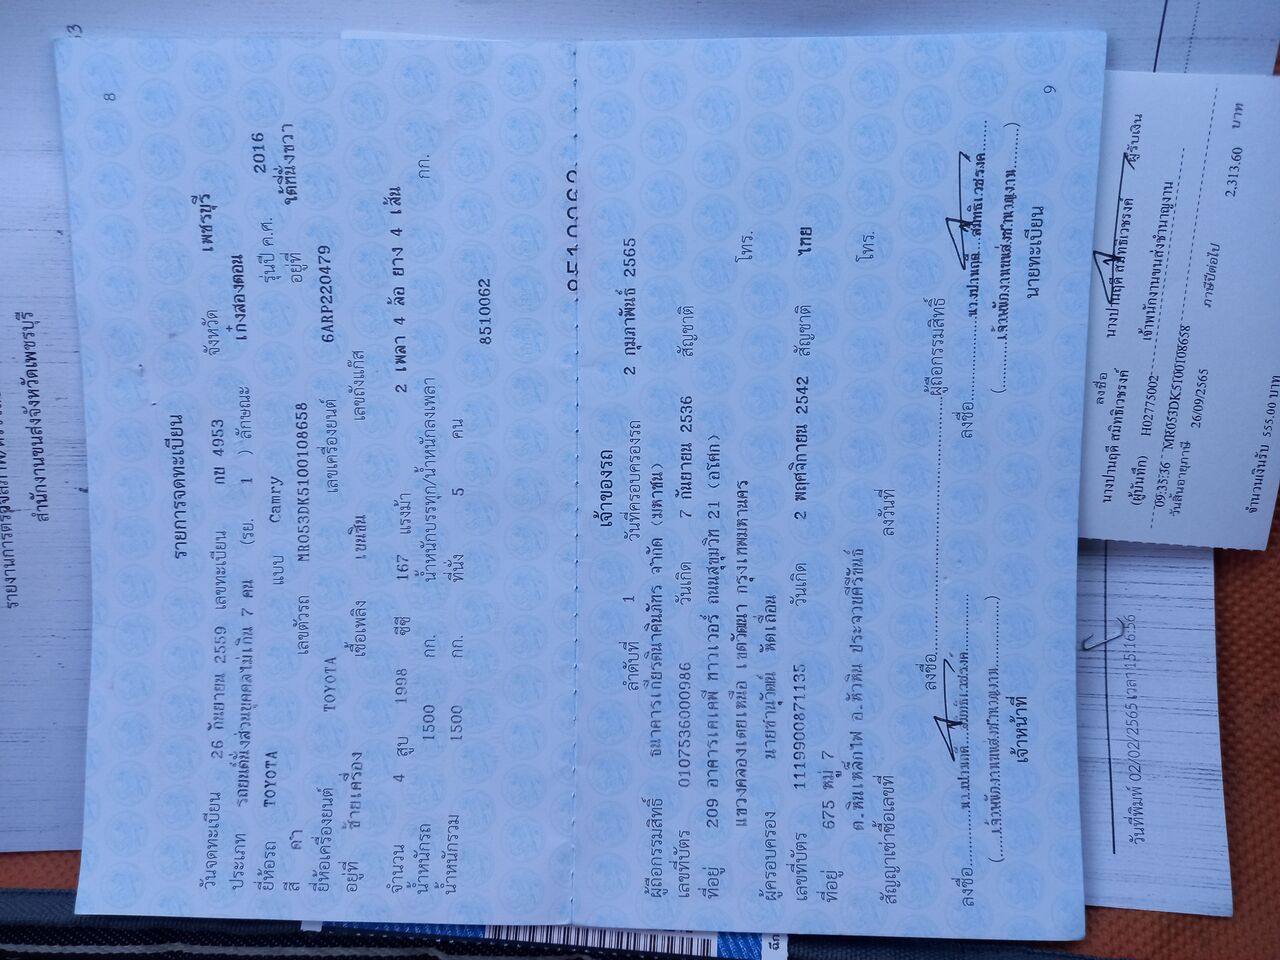 สำนักงานขนส่งจังหวัดเพชรบุรี
8
รายการจดทะเบียน
วันจดทะเบียน 26 กันยายน 2559 เลขทะเบียน กบ 4953 จังหวัด เพชรบุรี
ประเภท รถยนต์นั่งส่วนบุคคลไม่เกิน 7 คน (รย. 1 ) ลักษณะ เก๋งสองตอน
ยี่ห้อรถ TOYOTA แบบ Camry รุ่นปี ค.ศ. 2016
สี ดำ เลขตัวรถ MR053DK5100108658 อยู่ที่ ใต้ที่นั่งขวา
ยี่ห้อเครื่องยนต์ TOYOTA เลขเครื่องยนต์ 6ARP220479
อยู่ที่ ซ้ายเครื่อง เชื้อเพลิง เบนซิน เลขถังแก๊ส
จำนวน 4 สูบ 1998 ซีซี 167 แรงม้า 2 เพลา 4 ล้อ ยาง 4 เส้น
น้ำหนักรถ 1500 กก. น้ำหนักบรรทุก/น้ำหนักลงเพลา กก.
น้ำหนักรวม 1500 กก. ที่นั่ง 5 คน
8510062
เจ้าของรถ
ลำดับที่ 1 วันที่ครอบครองรถ 2 กุมภาพันธ์ 2565
ผู้ถือกรรมสิทธิ์ ธนาคารเกียรตินาคินภัทร จำกัด (มหาชน)
เลขที่บัตร 0107536000986 วันเกิด 7 กันยายน 2536 สัญชาติ
ที่อยู่ 209 อาคารเคเคพี ทาวเวอร์ ถนนสุขุมวิท 21 (อโศก)
แขวงคลองเตยเหนือ เขตวัฒนา กรุงเทพมหานคร โทร.
ผู้ครอบครอง นายชานุวัฒน์ หัดเถื่อน
เลขที่บัตร 1119900871135 วันเกิด 2 พฤศจิกายน 2542 สัญชาติ ไทย
ที่อยู่ 675 หมู่ 7
ต.หินเหล็กไฟ อ.หัวหิน ประจวบคีรีขันธ์ โทร.
สัญญาเช่าซื้อเลขที่ ลงวันที่
ลงชื่อ ผู้ถือกรรมสิทธิ์
ลงชื่อ นางปานฤดี สมิทธิเวชรงค์ ลงชื่อ นางปานฤดี สมิทธิเวชรงค์
(เจ้าพนักงานขนส่งชำนาญงาน) (เจ้าพนักงานขนส่งชำนาญงาน)
เจ้าหน้าที่ นายทะเบียน
9
ลงชื่อ นางปานฤดี สมิทธิเวชรงค์ ผู้รับเงิน
นางปานฤดี สมิทธิเวชรงค์
(ผู้บันทึก) H02775002 เจ้าพนักงานขนส่งชำนาญงาน
09:35:36 MR053DK5100108658
วันสิ้นอายุภาษี 26/09/2565 ภาษีปีต่อไป 2,313.60 บาท
จำนวนเงินรับ 555.00 บาท
วันที่พิมพ์ 02/02/2565 เวลา 15:16:56